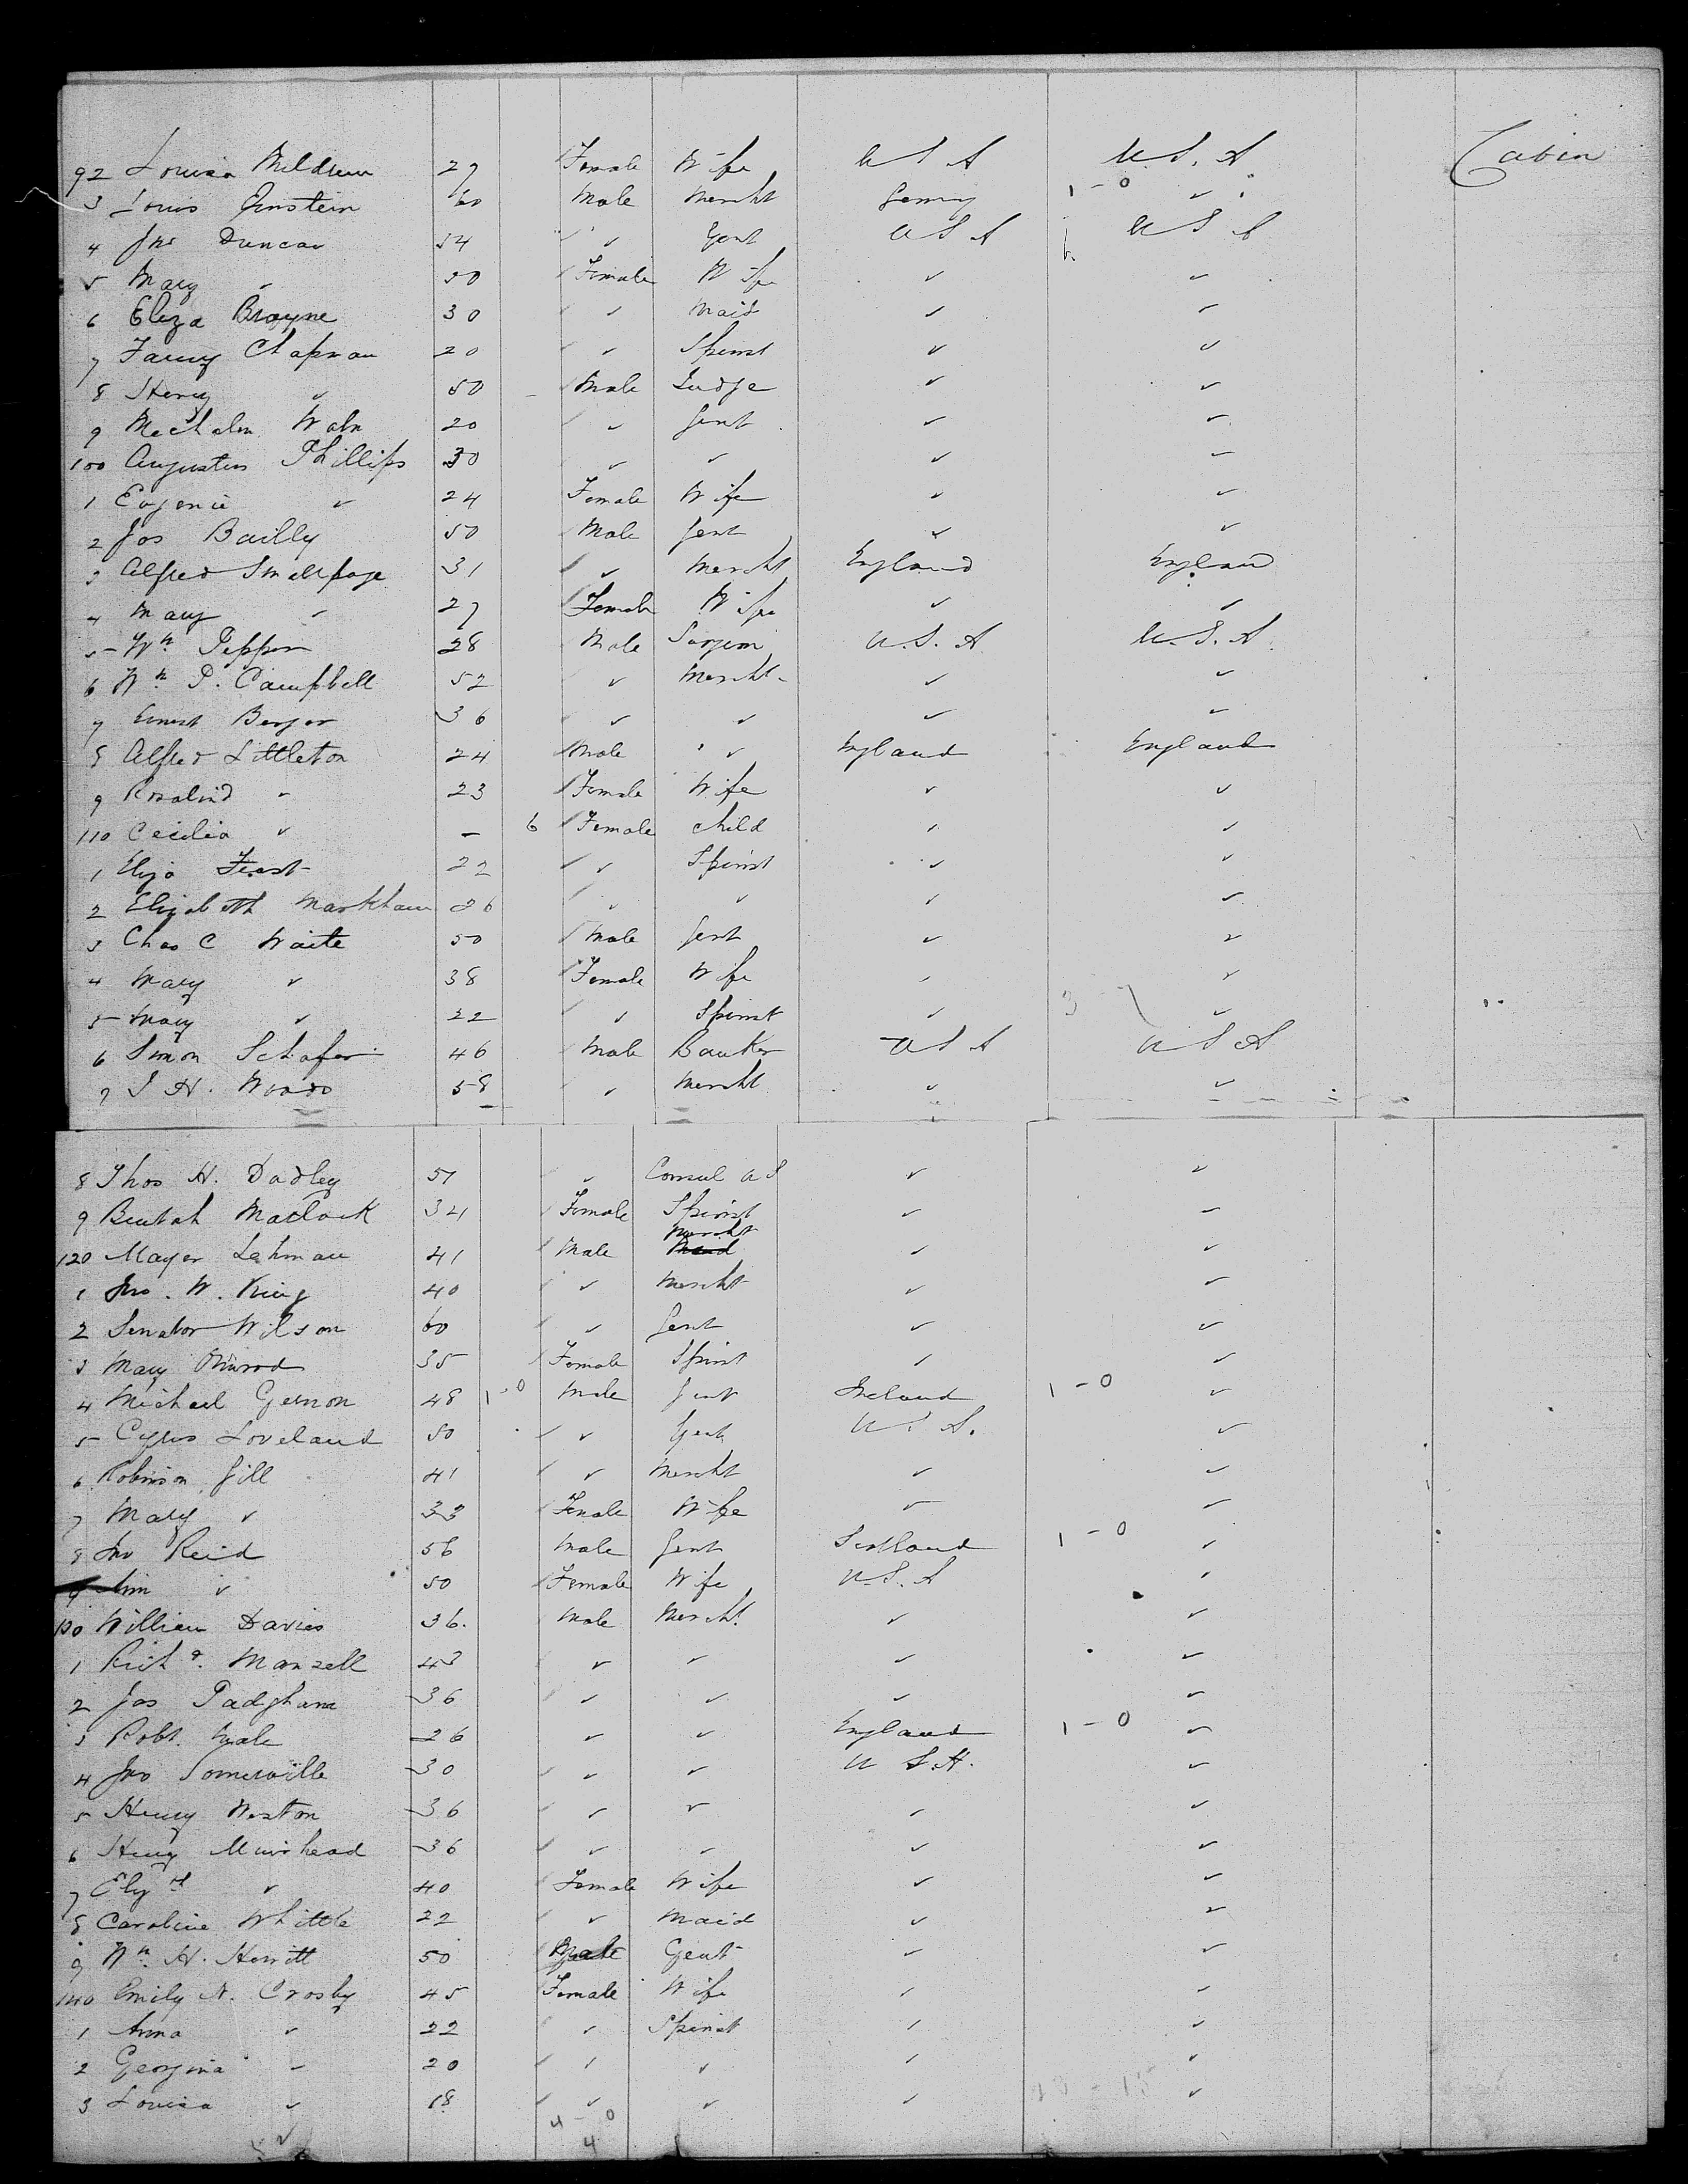 92 Louisa Mildrum 27 Female Wife U S A U.S.A Cabin
3 Louis Einstein 60 Male Mercht Germy 1-0 ✓
4 Jno Duncan 54 ✓ Gent U S A U S A
5 Mary ✓ 50 Female Wife ✓ ✓
6 Eliza Brayne 30 ✓ Maid ✓ ✓
7 Fanny Chapman 20 ✓ Spinst ✓ ✓
8 Henry ✓ 50 Male Judge ✓ ✓
9 Waln 20 ✓ Gent ✓ ✓
100 Augustus Phillips 30 ✓ ✓ ✓ ✓
1 Eugenie ✓ 24 Female Wife ✓ ✓
2 Jos Bailly 50 Male Gent ✓ ✓
3 Alfred Smallpage 31 ✓ Mercht England England
4 Mary ✓ 27 Female Wife ✓ ✓
5 Wm. Pepper 28 Male Surgeon U.S.A U.S.A.
6 Wm. P. Campbell 52 ✓ Mercht ✓ ✓
7 Ernest Berger 36 ✓ ✓ ✓ ✓
8 Alfred Littleton 24 Male ✓ England England
9 Rosalind ✓ 23 Female Wife ✓ ✓
110 Cecilia ✓ - 6 Female Child ✓ ✓
1 Eliza Feast 22 ✓ Spinst ✓ ✓
2 Elizabeth Markham 26 ✓ ✓ ✓ ✓
3 Chas C Waite 50 Male Gent ✓ ✓
4 Mary ✓ 38 Female Wife ✓ ✓
5 Mary ✓ 22 ✓ Spinst ✓ ✓
6 Simon Schafer 46 Male Banker U S A U S A
7 J H. Woods 58 ✓ Mercht ✓ ✓
8 Thos H. Dudley 51 ✓ Consul U S ✓ ✓
9 Beulah Matlack 34 Female Spinst ✓ ✓
120 Mayer Lehman 41 Male Mercht ✓ ✓
1 Jno. W. King 40 ✓ Mercht ✓ ✓
2 Senator Wilson 60 ✓ Gent ✓ ✓
3 Mary 35 Female Spinst ✓ ✓
4 Michael Gernon 48 1-0 Male Gent Ireland 1-0 ✓
5 Cyrus Loveland 50 ✓ Gent U.S.A. ✓
6 Robinson Gill 41 ✓ Mercht ✓ ✓
7 Mary ✓ 33 Female Wife ✓ ✓
8 Jno Reid 56 Male Gent Scotland 1-0 ✓
9 Ann ✓ 50 Female Wife U.S.A ✓
130 William Davies 36. Male Mercht ✓ ✓
1 Richd. Manzell 43 ✓ ✓ ✓ ✓
2 Jas Padgham 36 ✓ ✓ ✓ ✓
3 Robt. 26 ✓ ✓ England 1-0 ✓
4 Jno Somerville 30 ✓ ✓ U S.A. ✓
5 Henry Weston 36 ✓ ✓ ✓ ✓
6 Henry Muirhead 36 ✓ ✓ ✓ ✓
7 Elizth ✓ 40 Female Wife ✓ ✓
8 Caroline Whittle 22 ✓ Maid ✓ ✓
9 Wm. H. Hewitt 50 Male Gent ✓ ✓
140 Emily A. Crosby 45 Female Wife ✓ ✓
1 Anna ✓ 22 ✓ Spinst ✓ ✓
2 Georgina ✓ 20 ✓ ✓ ✓ ✓
3 Louisa ✓ 18 ✓ ✓ ✓ ✓
4-0
4